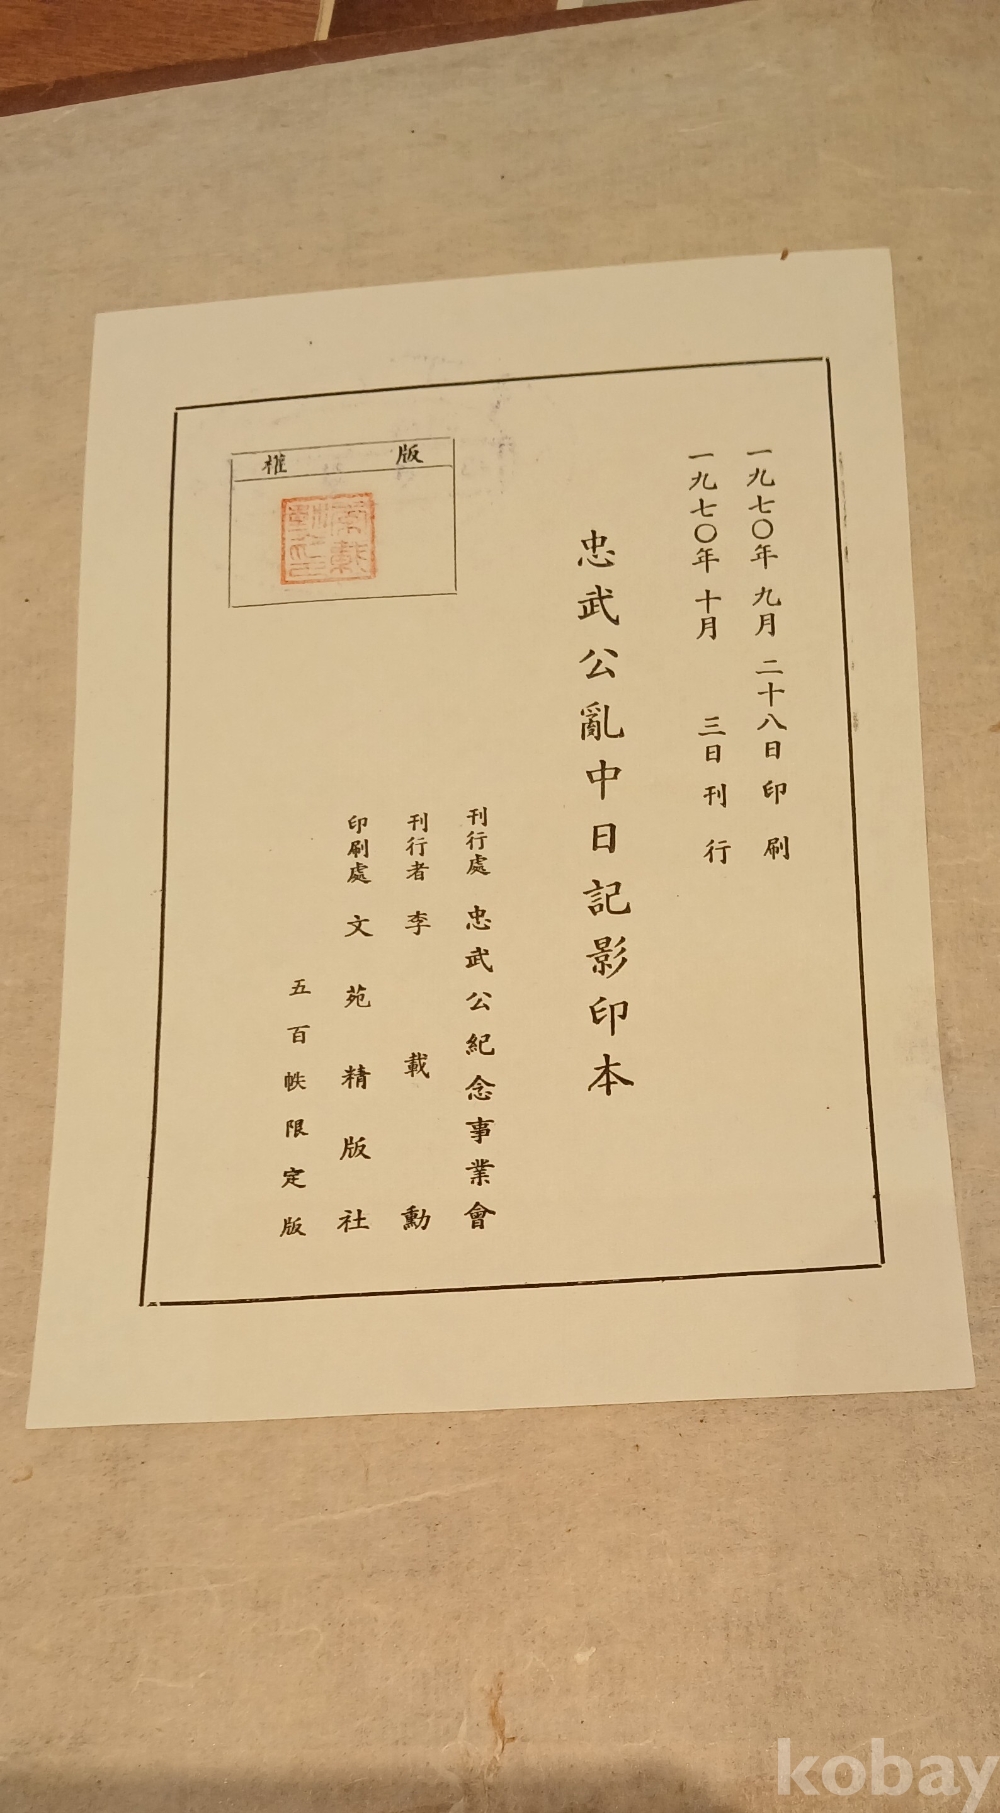 一九七〇年 九月 二十八日 印刷
一九七〇年 十月 三日 刊行
忠武公亂中日記影印本
刊行處 忠武公紀念事業會
刊行者 李載勳
印刷處 文苑精版社
五百帙限定版
版權
kobay